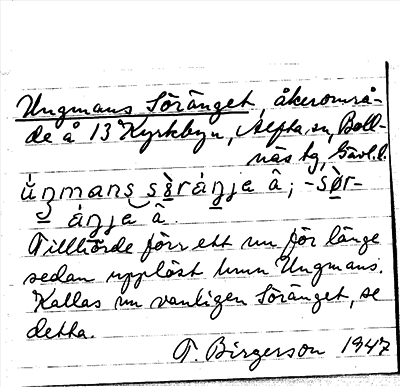 Ungmans Söränget, åkerområ-
de å 13 Kyrkbyn, Alfta sn, Boll-
näs tg, Gävl. l.
úŋmans sø̀ráŋje â; -sø̀r-
áŋje â.
Tillhörde förr ett nu för länge
sedan upplöst hmn Ungmans.
Kallas nu vanligen Söränget, se
detta.
T. Birgerson 1947